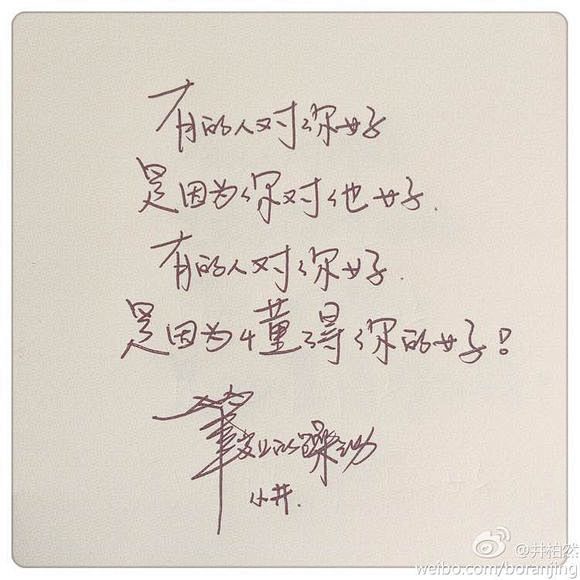 有的人对你好
是因为你对他好.
有的人对你好.
是因为懂得你的好!
笔尖上的躁动
小井.
@井柏然
weibo.com/boranjing